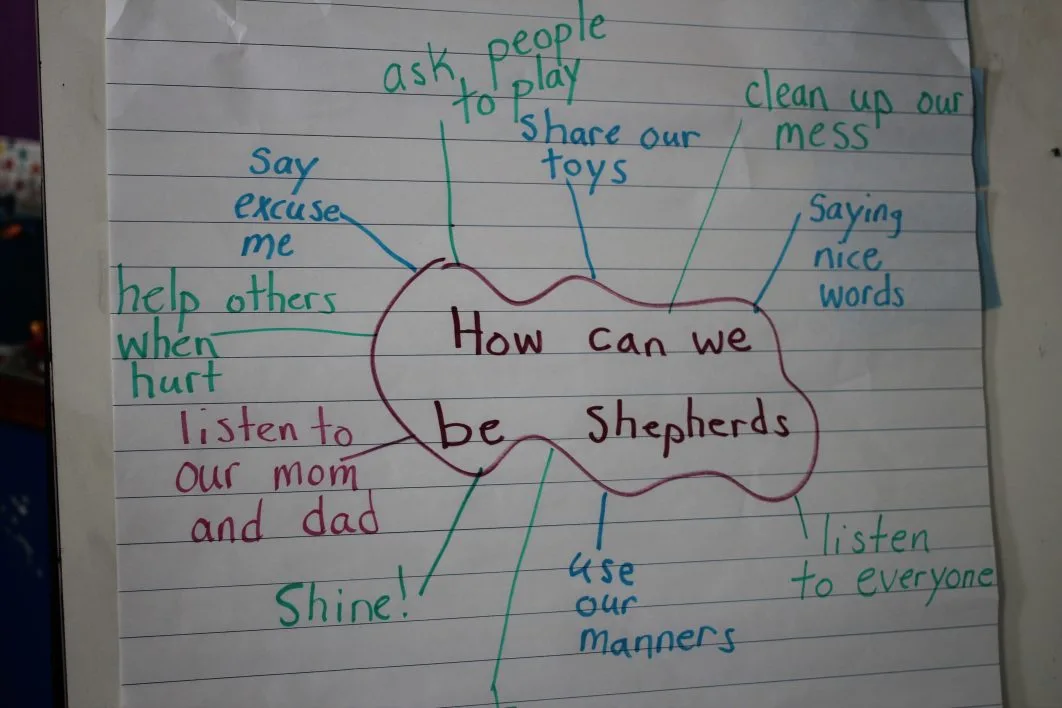 ask people
to play
clean up our
mess
share our
toys
Say
excuse
me
Saying
nice
words
help others
when
hurt
How can we
be Shepherds
listen to
our mom
and dad
Shine!
use
our
manners
listen
to everyone